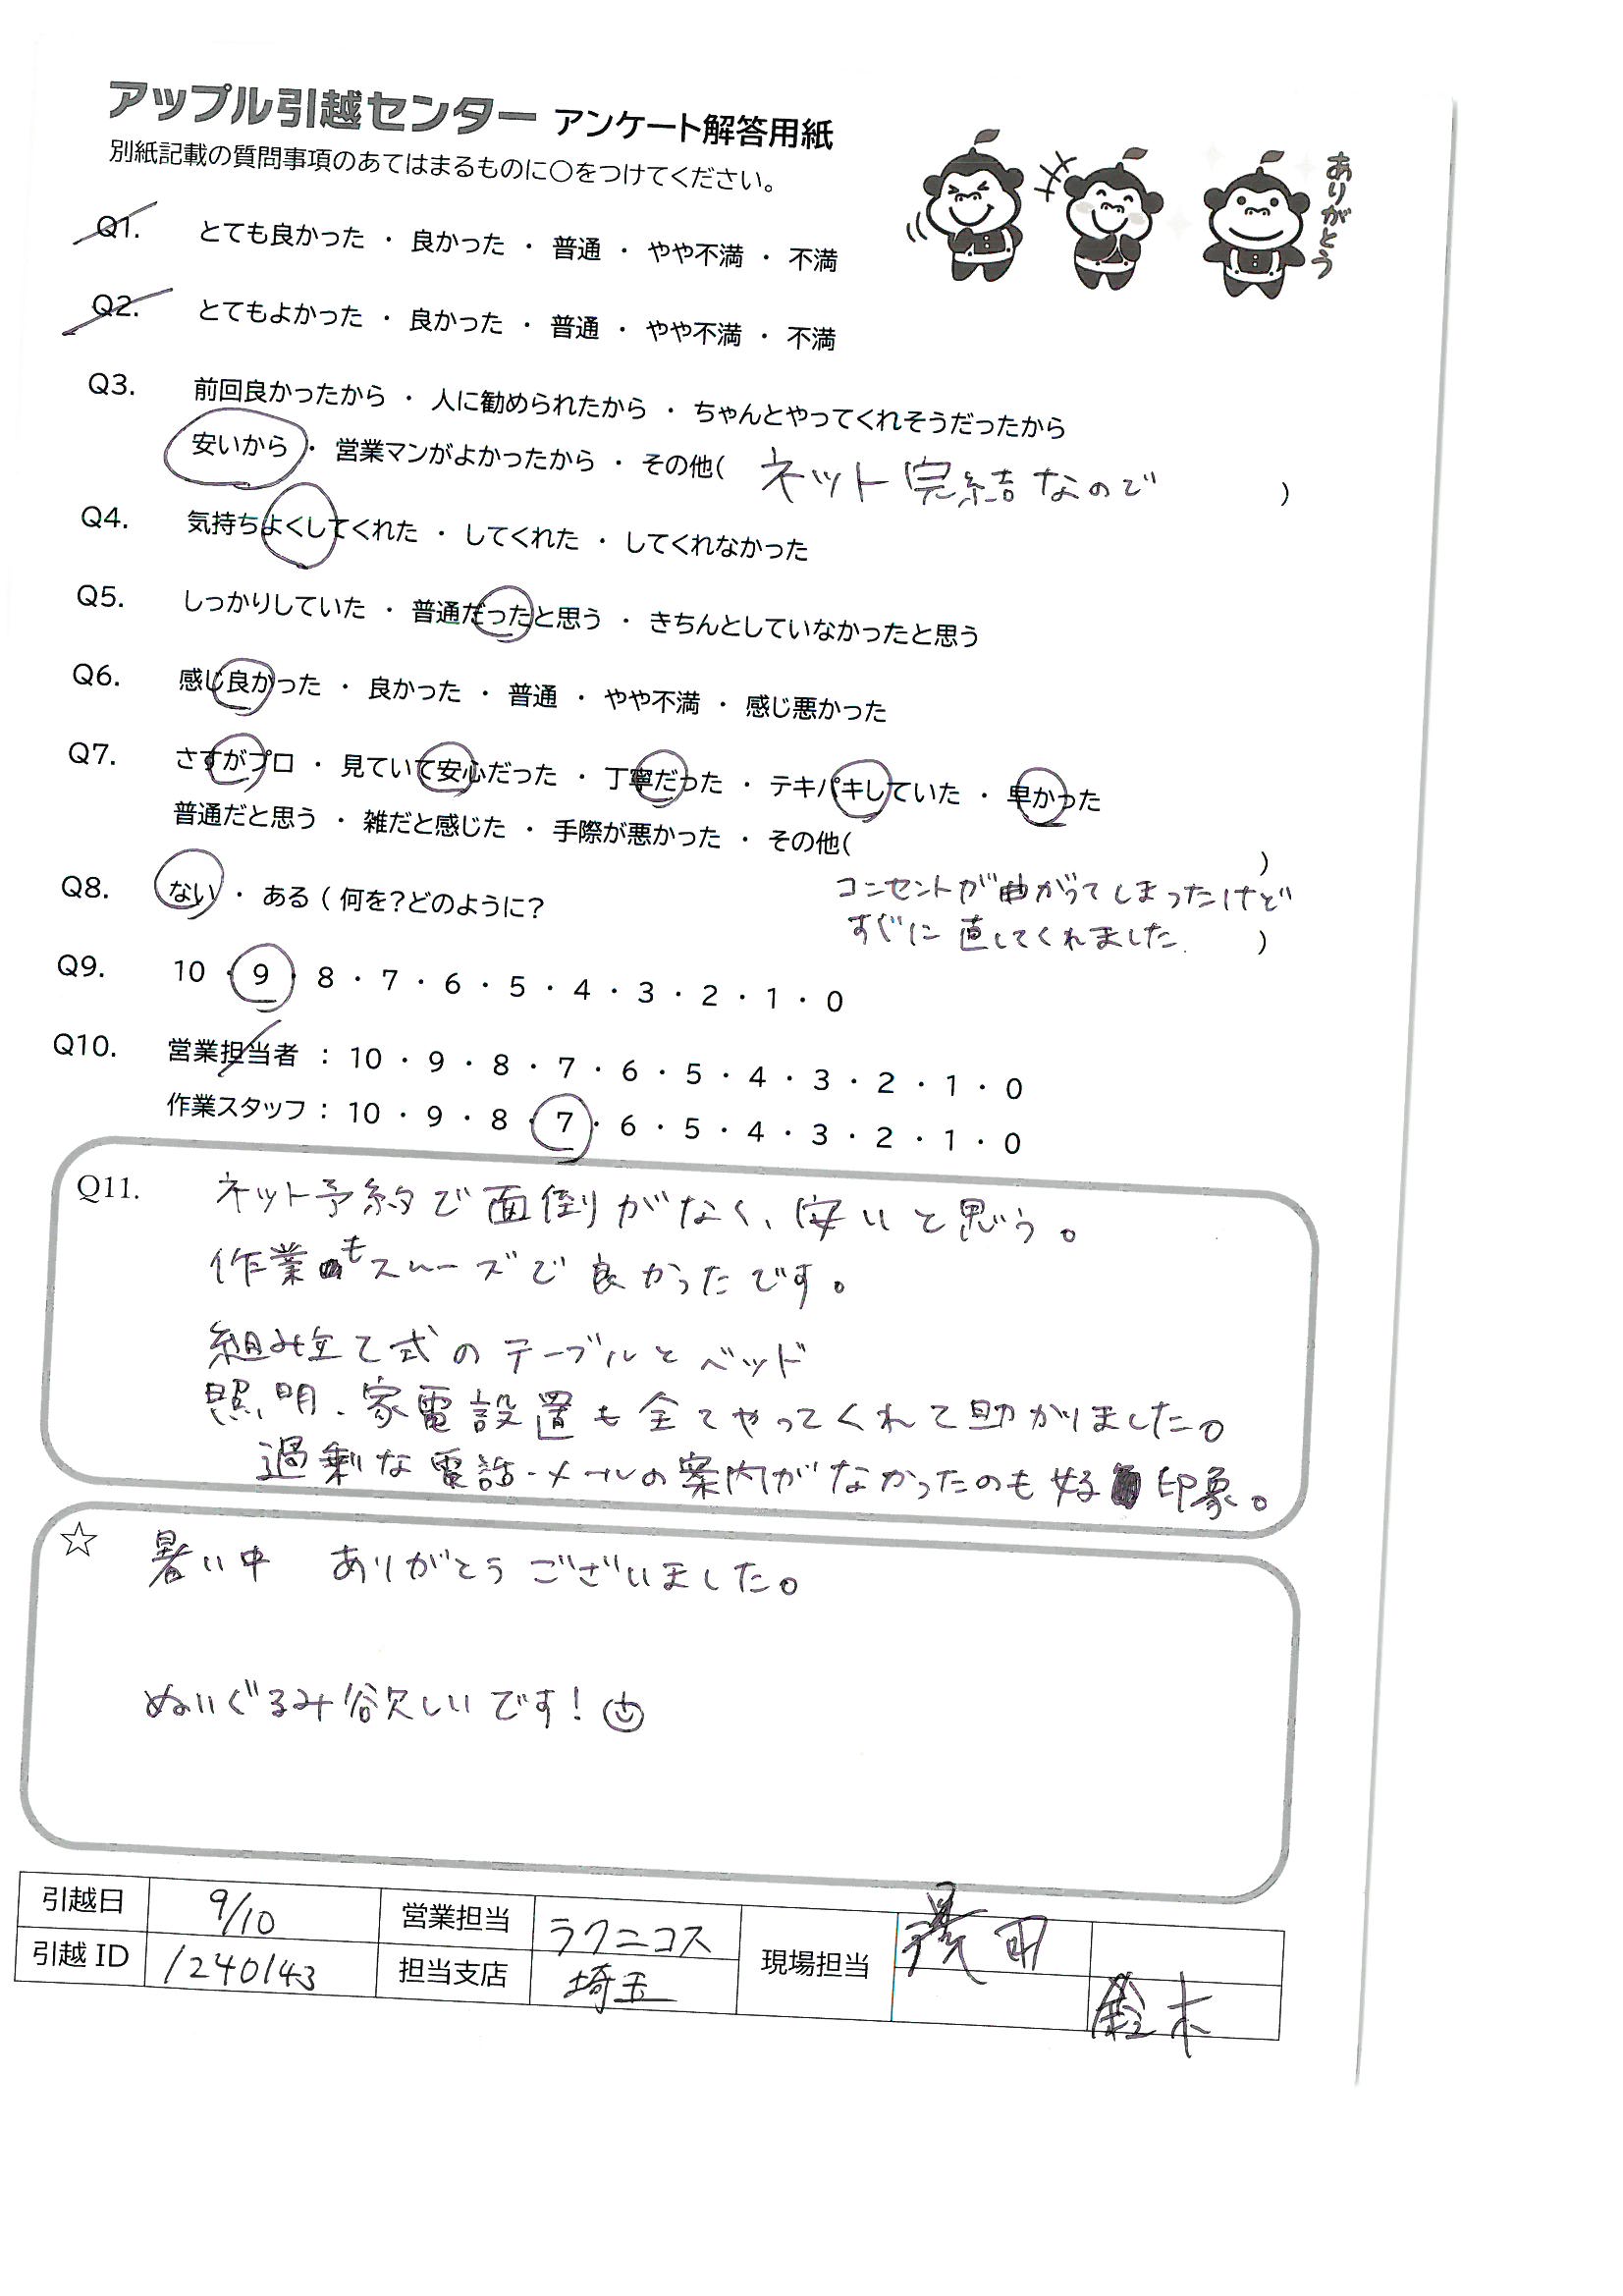 アップル引越センター アンケート解答用紙
別紙記載の質問事項のあてはまるものに○をつけてください。
ありがとう
Q1. とても良かった ・ 良かった ・ 普通 ・ やや不満 ・ 不満
Q2. とてもよかった ・ 良かった ・ 普通 ・ やや不満 ・ 不満
Q3. 前回良かったから ・ 人に勧められたから ・ ちゃんとやってくれそうだったから
安いから ・ 営業マンがよかったから ・ その他( ネット完結なので )
Q4. 気持ちよくしてくれた ・ してくれた ・ してくれなかった
Q5. しっかりしていた ・ 普通だったと思う ・ きちんとしていなかったと思う
Q6. 感じ良かった ・ 良かった ・ 普通 ・ やや不満 ・ 感じ悪かった
Q7. さすがプロ ・ 見ていて安心だった ・ 丁寧だった ・ テキパキしていた ・ 早かった
普通だと思う ・ 雑だと感じた ・ 手際が悪かった ・ その他( )
Q8. ない ・ ある ( 何を?どのように? コンセントが曲がってしまったけど
すぐに直してくれました. )
Q9. 10 ・ 9 ・ 8 ・ 7 ・ 6 ・ 5 ・ 4 ・ 3 ・ 2 ・ 1 ・ 0
Q10. 営業担当者 : 10 ・ 9 ・ 8 ・ 7 ・ 6 ・ 5 ・ 4 ・ 3 ・ 2 ・ 1 ・ 0
作業スタッフ : 10 ・ 9 ・ 8 ・ 7 ・ 6 ・ 5 ・ 4 ・ 3 ・ 2 ・ 1 ・ 0
Q11. ネット予約で面倒がなく、安いと思う。
作業もスムーズで良かったです。
組み立て式のテーブルとベッド
照明、家電設置も全てやってくれて助かりました。
過剰な電話・メールの案内がなかったのも好印象。
☆ 暑い中 ありがとうございました。
ぬいぐるみ欲しいです!
引越日 9/10 営業担当 ラクニコス 現場担当
引越 ID 1240143 担当支店 埼玉 鈴木